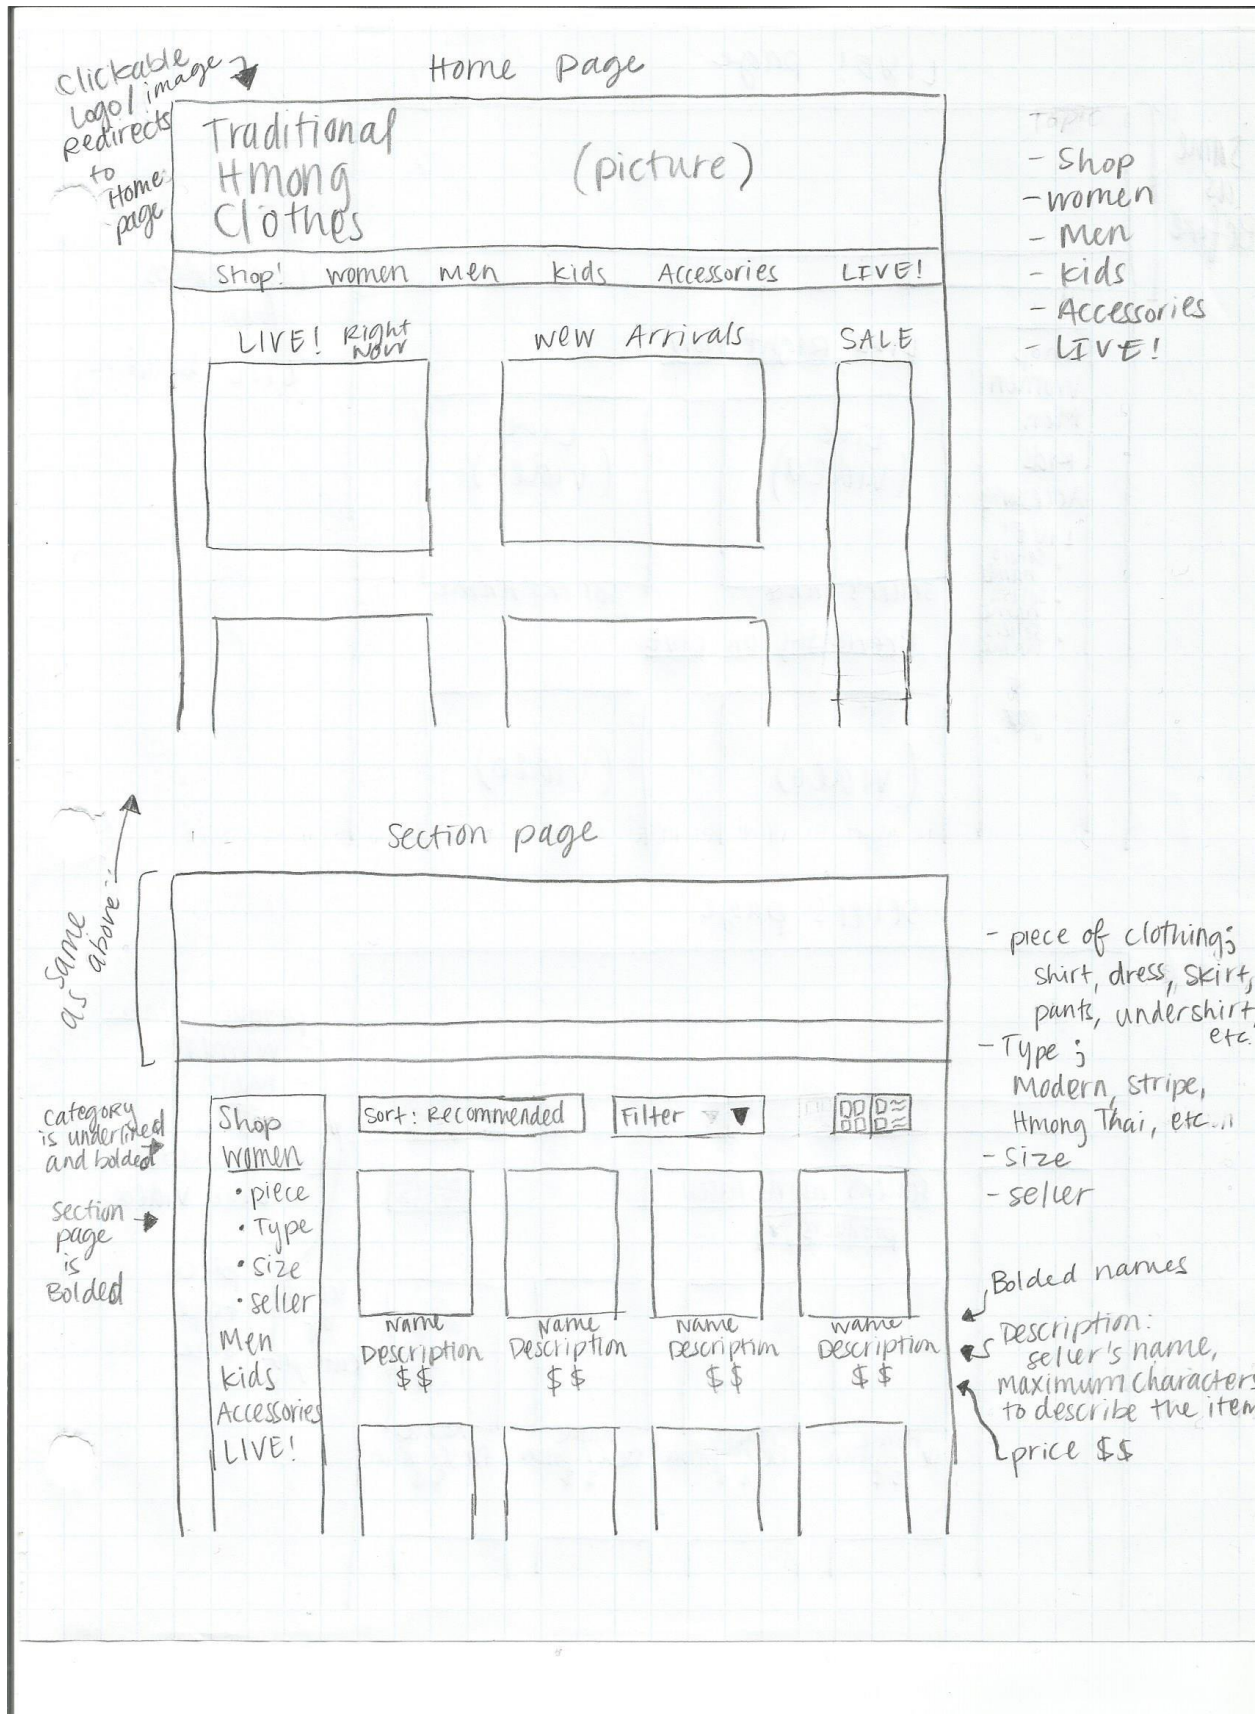 Home Page
Clickable
Logo/image
Redirects
to
Home
page
Traditional
Hmong
Clothes
(picture)
Shop! women men kids Accessories LIVE!
LIVE! Right
Now
New Arrivals
SALE
- Shop
- women
- Men
- kids
- Accessories
- LIVE!
Section page
Same
as above
category
is underlined
and bolded
section
page
is
Bolded
Shop
women
• piece
• Type
• size
• seller
Men
kids
Accessories
LIVE!
Sort: Recommended
Filter
Name Name Name Name
Description Description Description Description
$$ $$ $$ $$
- piece of clothing;
shirt, dress, skirt,
pants, undershirt,
etc.
- Type;
Modern, stripe,
Hmong Thai, etc...
- size
- seller
Bolded names
Description:
seller's name,
maximum characters
to describe the item
price $$